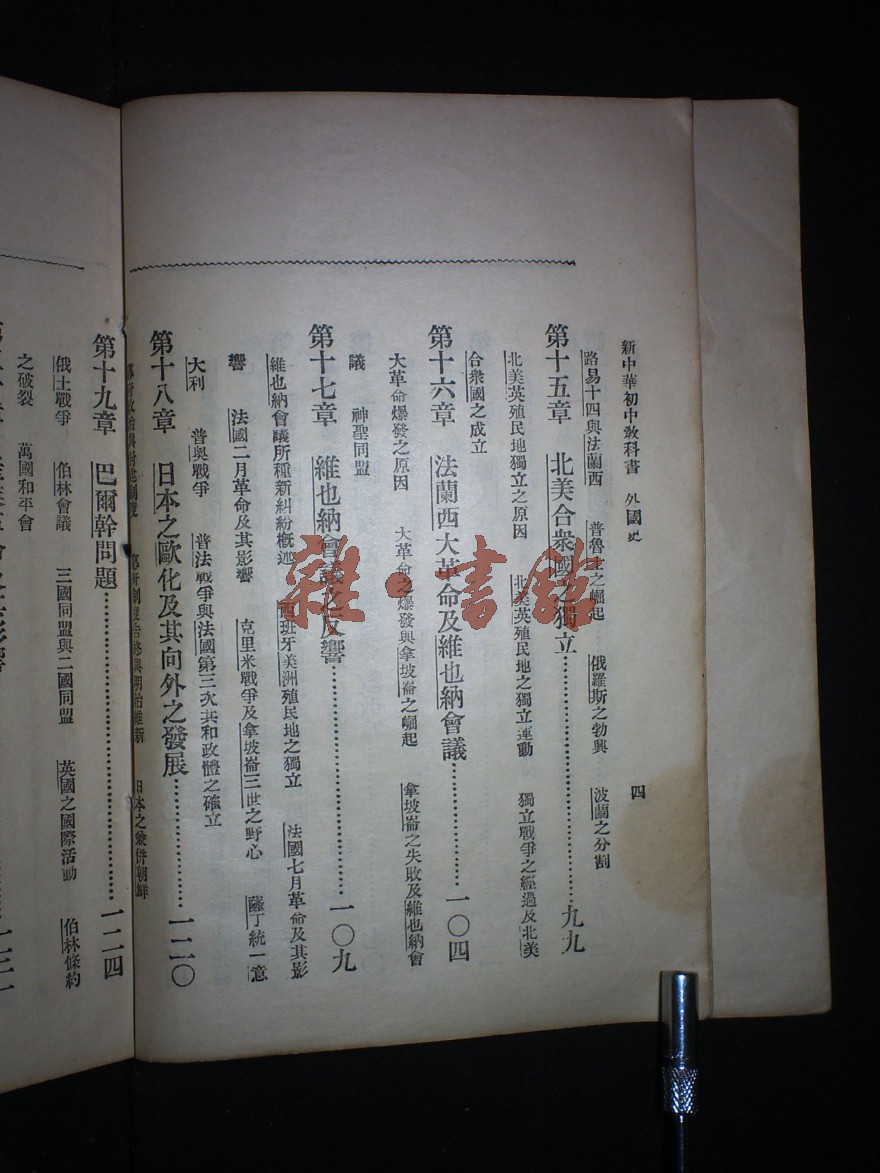 新中華初中敎科書　外國史
四
路易十四與法蘭西　普魯士之崛起　俄羅斯之勃興　波蘭之分割
第十五章　北美合衆國之獨立……九九
北美英殖民地獨立之原因　北美英殖民地之獨立運動　獨立戰爭之經過及北美
合衆國之成立
第十六章　法蘭西大革命及維也納會議……一〇四
大革命爆發之原因　大革命之爆發與拿坡崙之崛起　拿坡崙之失敗及維也納會
議　神聖同盟
第十七章　維也納會議之反響……一〇九
維也納會議所種新糾紛槪述　西班牙美洲殖民地之獨立　法國七月革命及其影
響　法國二月革命及其影響　克里米戰爭及拿坡崙三世之野心　薩丁統一意
大利　普奧戰爭　普法戰爭與法國第三次共和政體之確立
第十八章　日本之歐化及其向外之發展……一二〇
明治維新　日本之兼併朝鮮
第十九章　巴爾幹問題……一二四
俄土戰爭　伯林會議　三國同盟與二國同盟　英國之國際活動　伯林條約
之破裂　萬國和平會
雜·書館